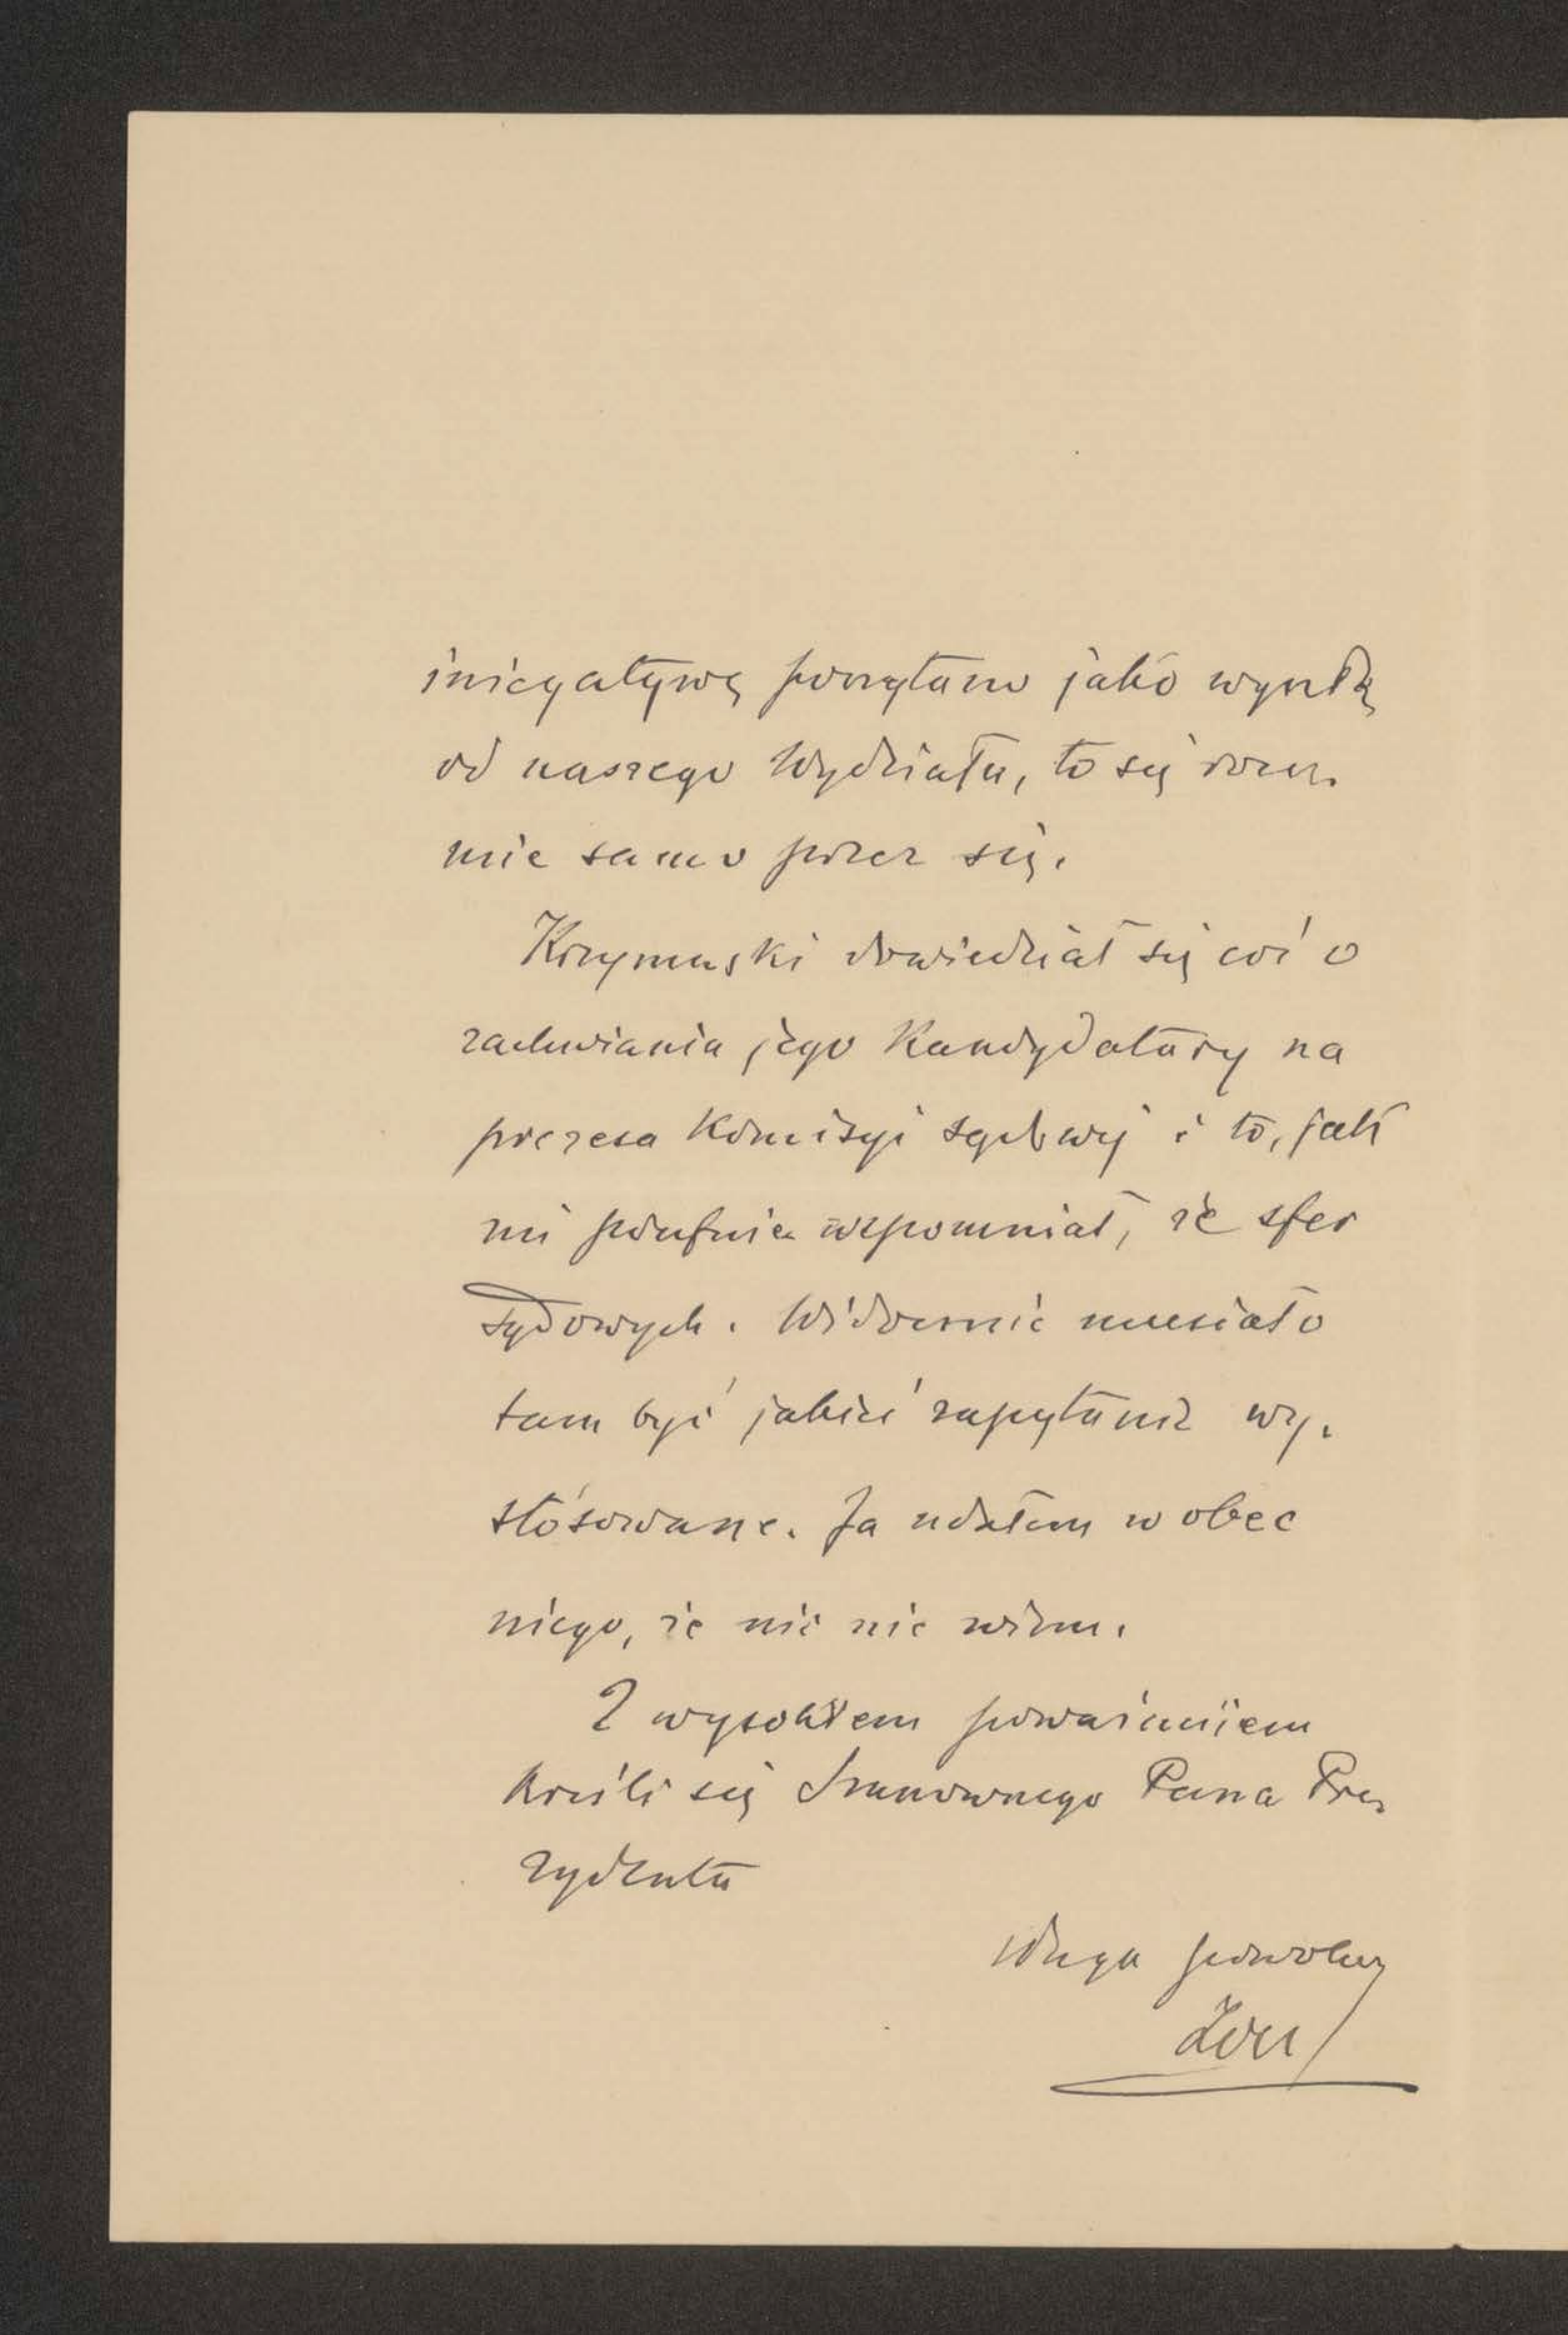 inicyatywę poczytano jako wyszłą
od naszego Wydziału, to się rozu-
mie samo przez się.
Krzymuski dowiedział się coś o
zachwiania jego Kandydatury na
prezesa Komisyi sądowej i to, jak
mi poufnie wspomniał, ze sfer
sądowych. Widocznie musiało
tam być jakieś zapytanie wy-
stósowane. Ja udałem wobec
niego, że nic nie wiem.
Z wysokiem poważaniem
kreśli się Szanownego Pana Pre-
zydenta
sługa powolny
Zoll